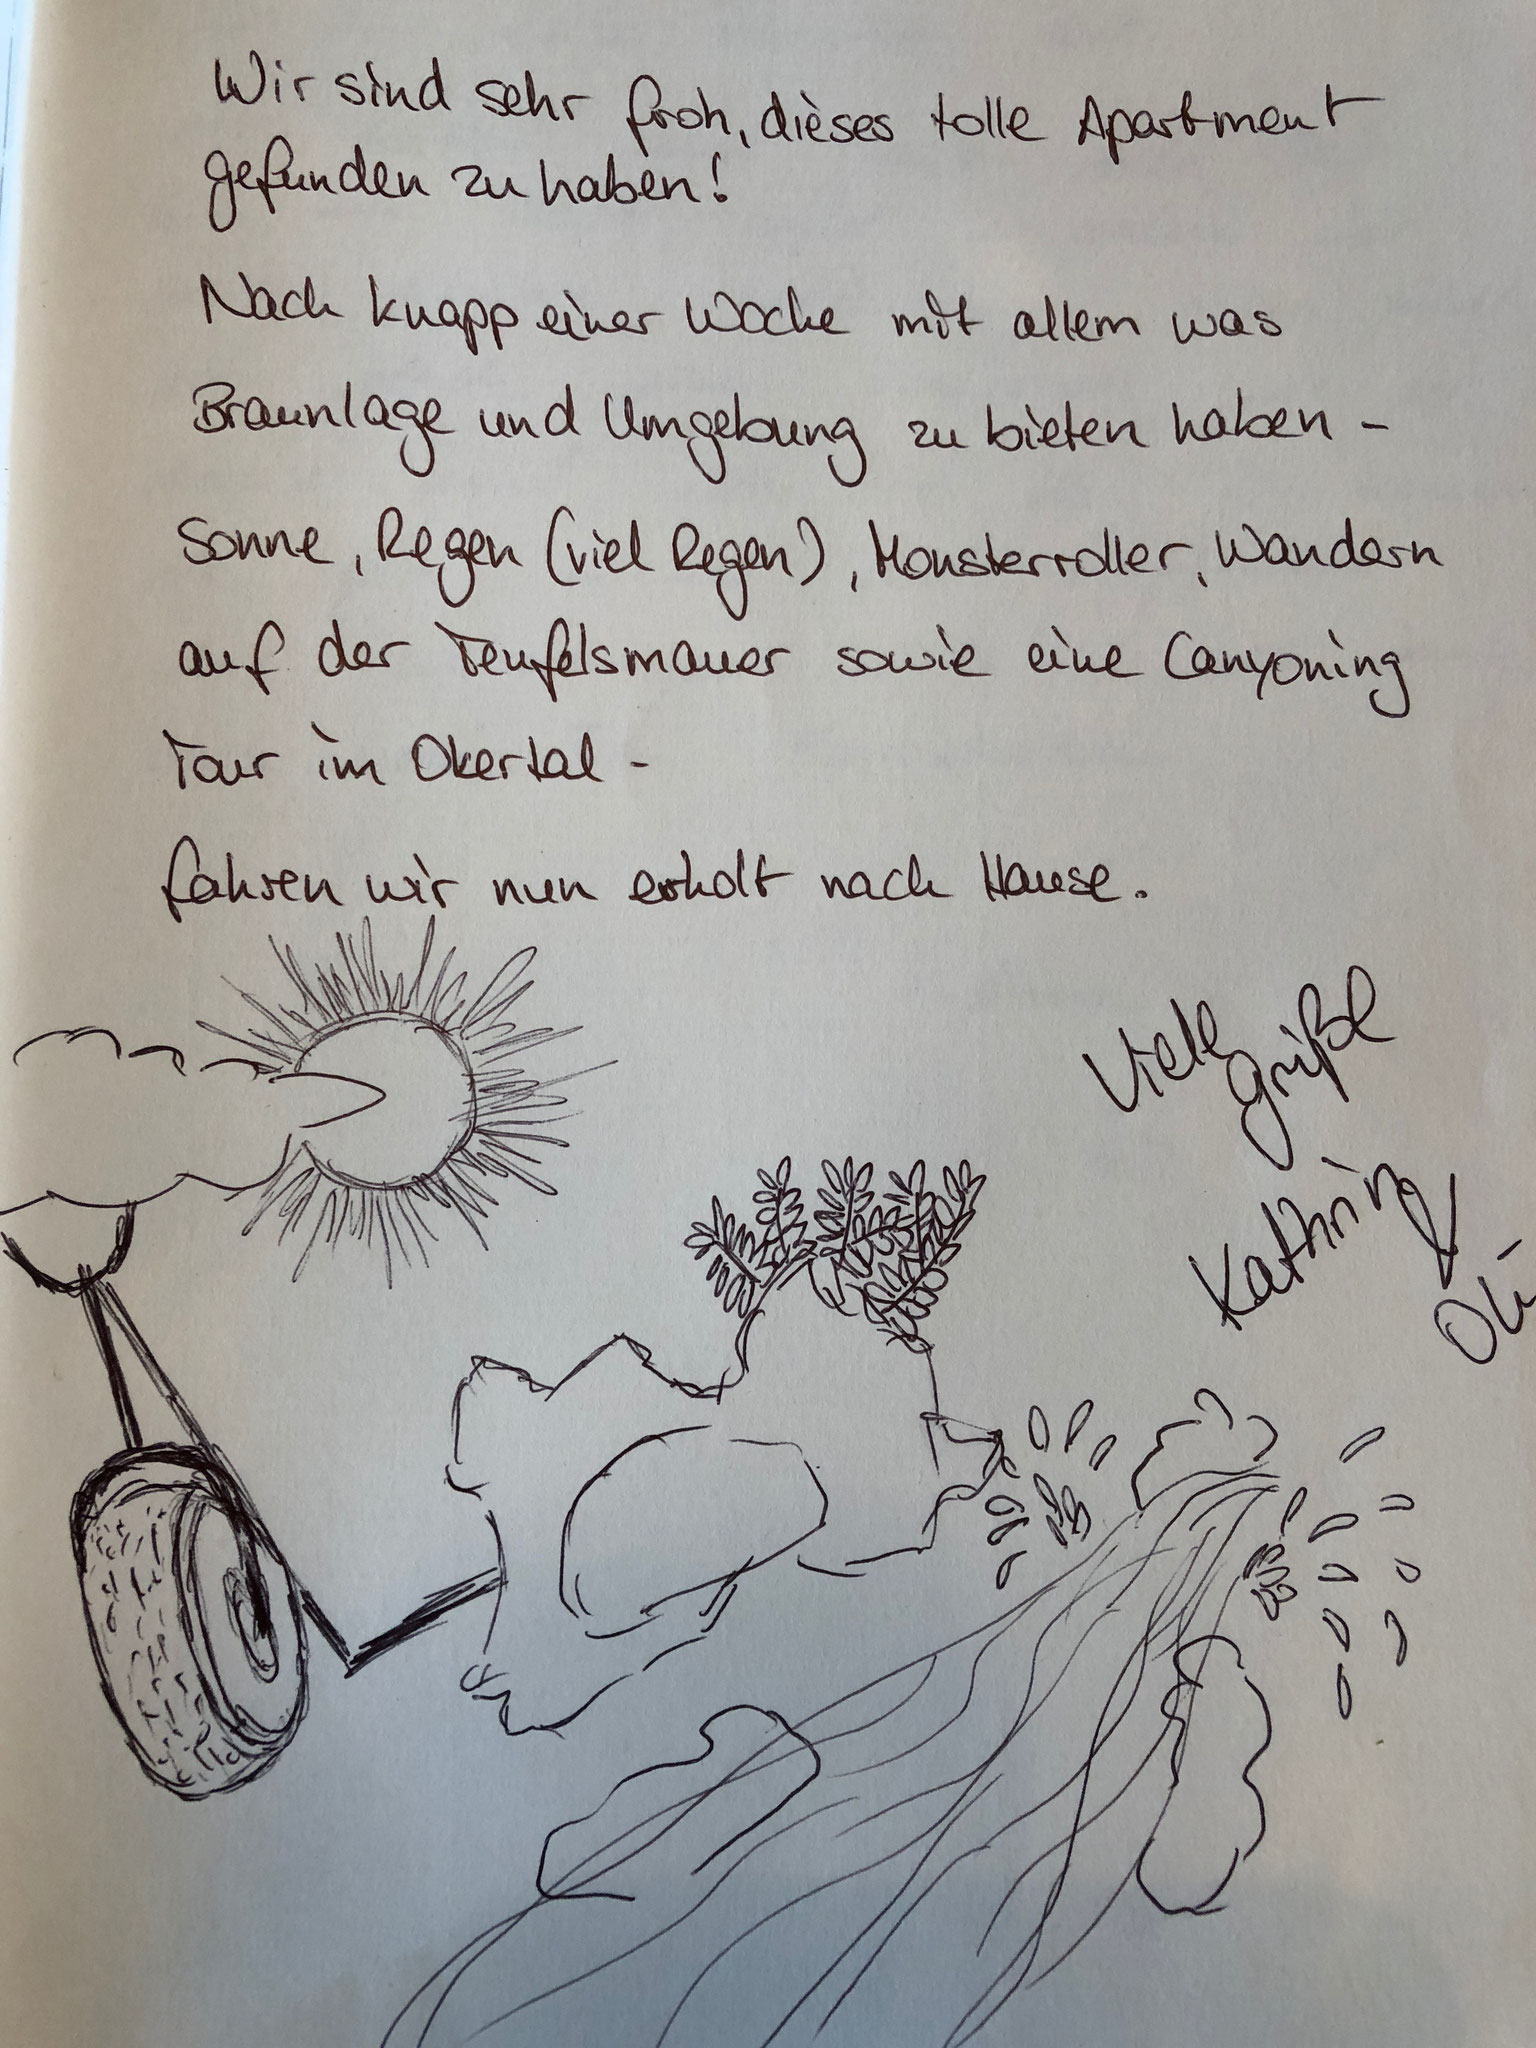 Wir sind sehr froh, dieses tolle Apartment
gefunden zu haben!
Nach knapp einer Woche mit allem was
Braunlage und Umgebung zu bieten haben -
Sonne, Regen (viel Regen), Monsterroller, Wandern
auf der Teufelsmauer sowie eine Canyoning
Tour im Okertal -
fahren wir nun erholt nach Hause.
Viele
Grüße
Kathrin
&
Oli